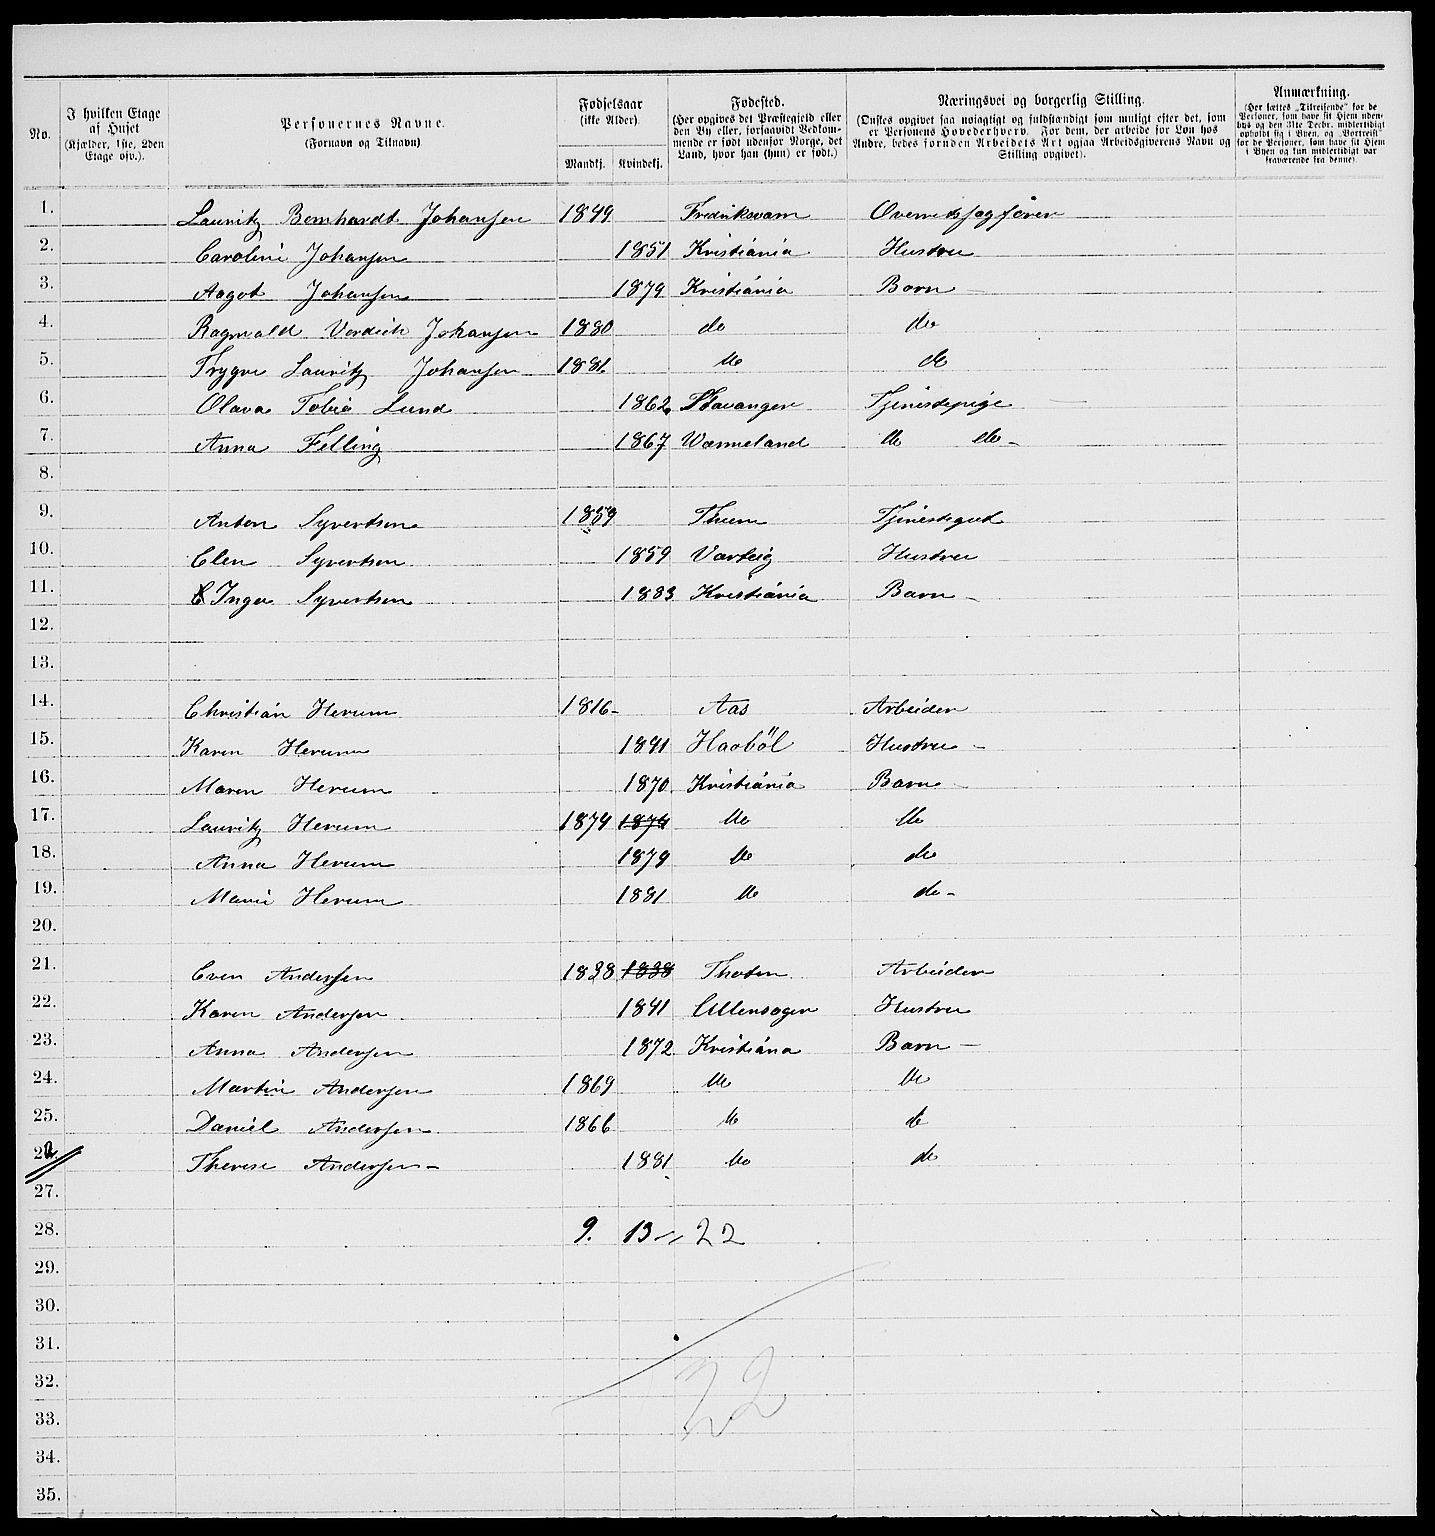 No. | I hvilken Etage af Huset (Kjælder, 1ste, 2den Etage osv.). | Personernes Navne. (Fornavn og Tilnavn) | Fødselsaar (ikke Alder). Mandkj. | Kvindekj. | Fødested. (Her opgives det Præstegjeld eller den By eller, forsaavidt Vedkommende er født udenfor Norge, det Land, hvor han (hun) er født.) | Næringsvei og borgerlig Stilling. (Ønskes opgivet saa nøiagtigt og fuldstændigt som muligt efter det, som er Personens Hovederhverv. For dem, der arbeide for Løn hos Andre, bedes foruden Arbeidets Art ogsaa Arbeidsgiverens Navn og Stilling opgivet). | Anmærkning. (Her sættes „Tilreisende" for de Personer, som have sit Hjem udenbys og den 31te Decbr. midlertidigt opholdt sig i Byen, og „Bortreist" for de Personer, som have sit Hjem i Byen og kun midlertidigt var fraværende fra denne).
1. Lauritz Bernhardt Johansen 1849 Fredriksværn Overretssagfører
2. Caroline Johansen 1851 Kristiania Hustru
3. Aagot Johansen 1879 Kristiania Barn
4. Ragnvald Johansen 1880 do do
5. Trygve Lauritz Johansen 1881 do do
6. Olava Tobia Lund 1862 Stavanger Tjenestepige
7. Anna Felling 1867 Wærmeland do do
8.
9. Anton Syvertsen 1859 Thune Tjenestegut
10. Elen Syvertsen 1859 Varteig Hustru
11. Inga Syvertsen 1883 Kristiania Barn
12.
13.
14. Christian Herum 1816 Aas Arbeider
15. Karen Herum 1841 Haabøl Hustru
16. Maren Herum 1870 Kristiania Barn
17. Lauritz Herum 1874 1874 do do
18. Anna Herum 1879 do do
19. Marie Herum 1881 do do
20.
21. Even Andersen 1838 1838 Thoten Arbeider
22. Karen Andersen 1841 Ullensager Hustru
23. Anna Andersen 1872 Kristiana Barn
24. Martin Andersen 1869 do do
25. Daniel Andersen 1866 do do
26. Therese Andersen 1881 do do
27.
28. 9. 13 = 22
29.
30.
31.
32. 22
33.
34.
35.